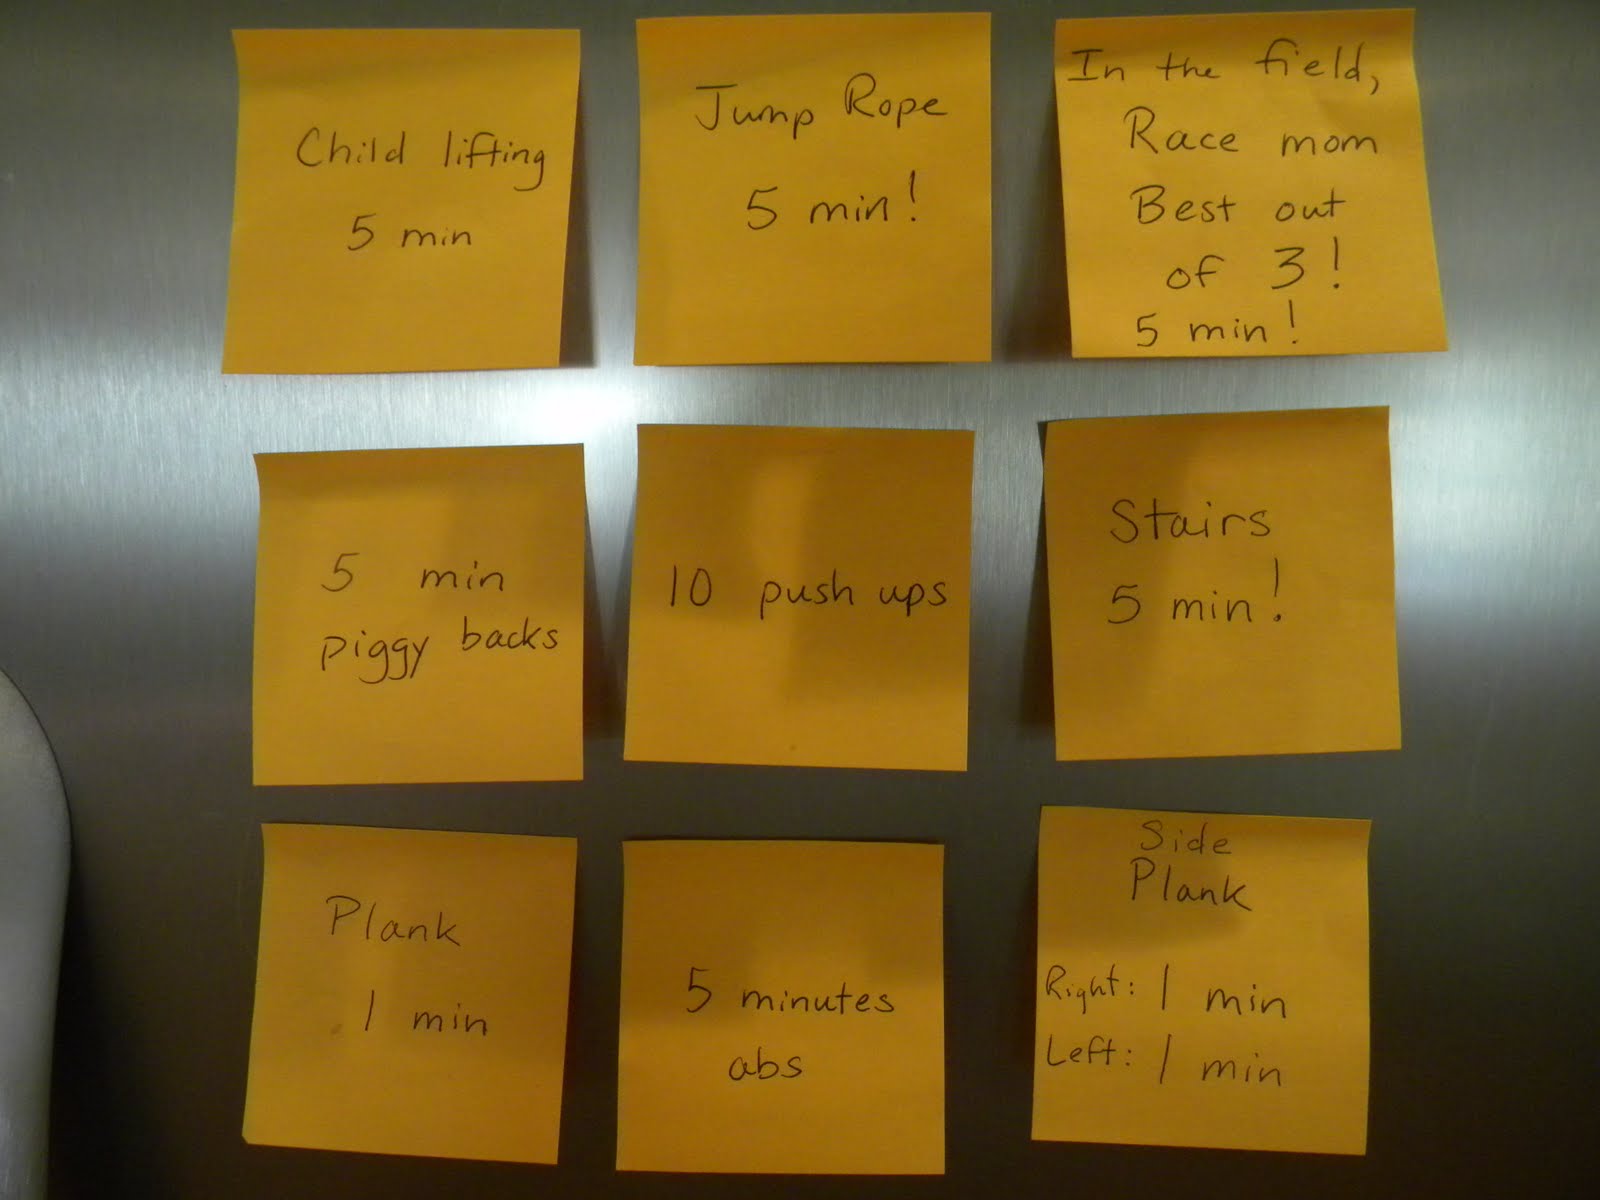 Child lifting
5 min
Jump Rope
5 min!
In the field,
Race mom
Best out
of 3!
5 min!
5 min
piggy backs
10 push ups
Stairs
5 min!
Plank
1 min
5 minutes
abs
Side
Plank
Right: 1 min
Left: 1 min